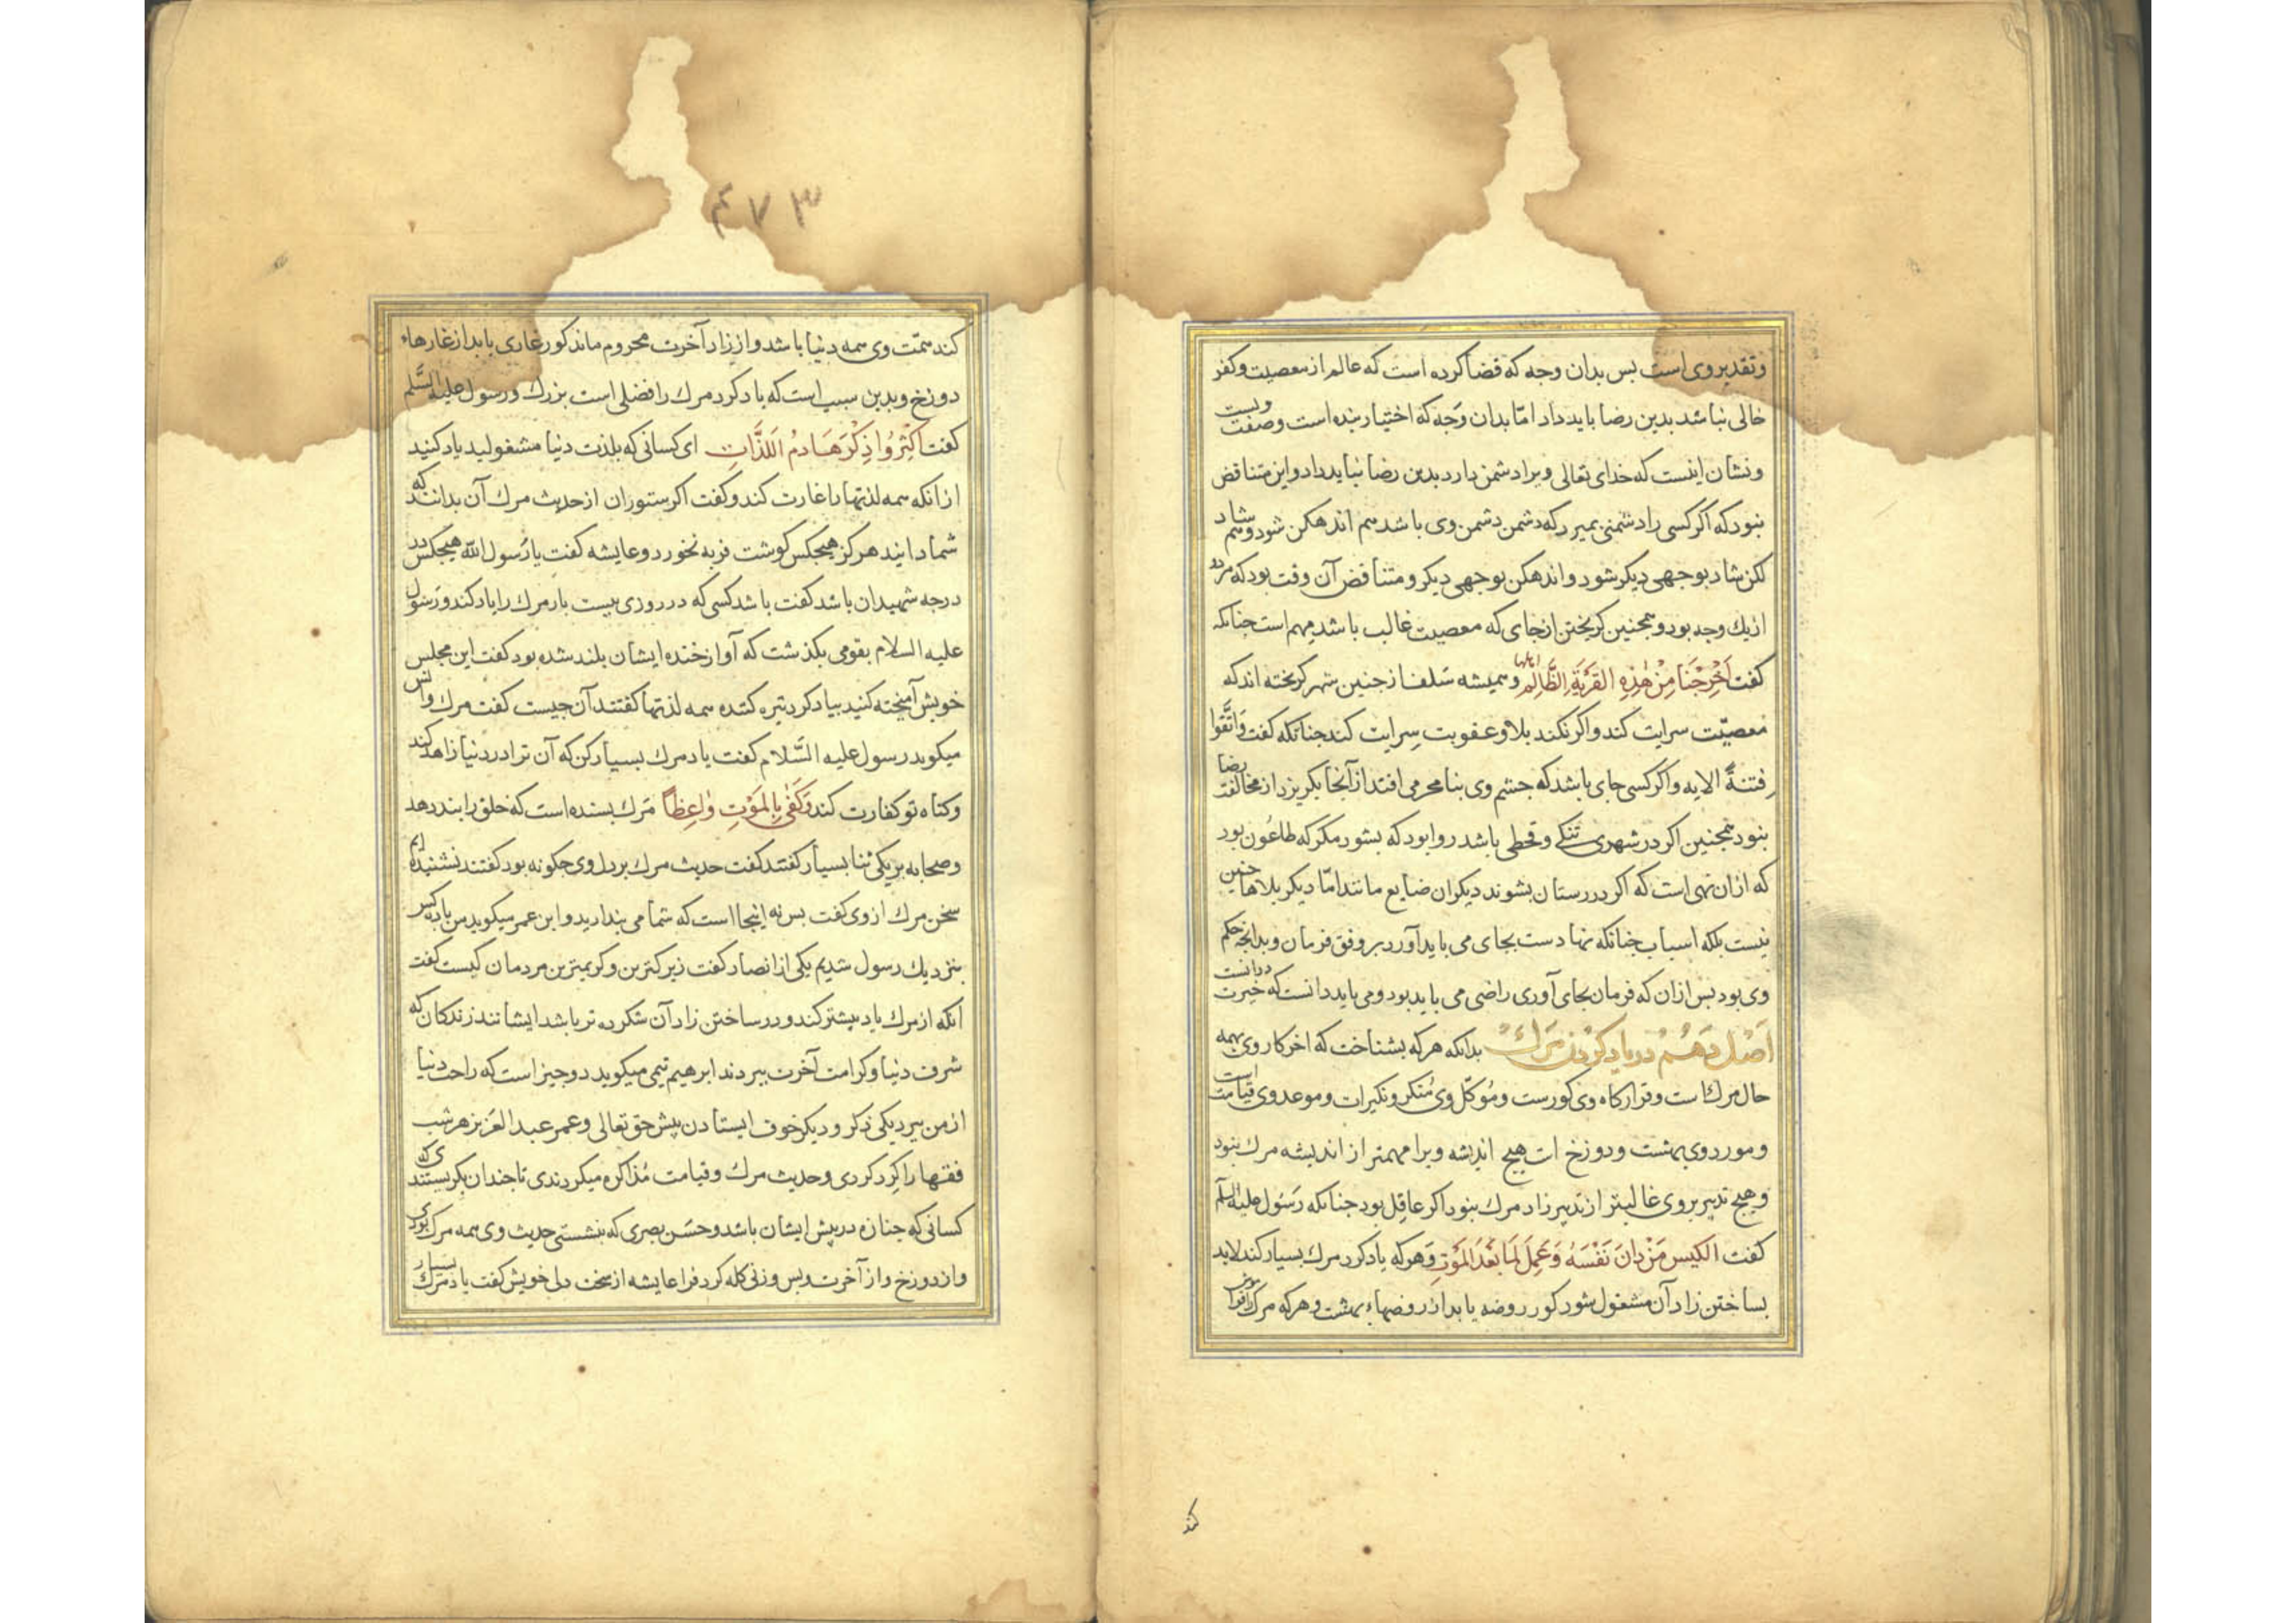 وتقدیر وی است بس بدان وجه که قضا کرده است که عالم از معصیت و کفر
خالی نباشد بدین رضا باید داد امّا بدان وَجه که اختیار بنده است وصفت ویست
ونشان اینست که خدای تعالی ویرا دشمن دارد بدین رضا نباید داد واین متناقض
نبود که اکر کسی را دشمنی بمیرد که دشمن دشمن وی باشد هم اندهکن شود وهم شاد
لکن شاد بوجهی دیکر شود واندهکن بوجهی دیکر ومتناقض آن وقت بود که هر دو
از یك وجه بود وهمجنین کریختن از جای که معصیت غالب باشد مهم است جنانکه
کفت اَخْرِجْنَا مِنْ هٰذِهِ القَرْیَةِ الظَّالِمِ اهلها وهمیشه سَلف از جنین شهر کریخته اند که
معصیّت سرایت کند واکر نکند بلا وعقوبت سِرایت کند جنانکه کفت وَاتَّقُوا
فِتنةً الایه واکر کسی جای باشد که جشم وی بنامحرمی افتد از آنجا بکریزد از مخالفت رضا
نبود همجنین اکر در شهری تنکی وقحطی باشد روا بود که بشود مکر که طاعُون بود
که ازان نهی است که اکر درستان بشوند دیکران ضایع مانند امّا دیکر بلاها جنین
نیست بلکه اسباب جنانکه نهادست بجای می باید آورد بر وفق فرمان وبدانجه حکم
وی بود بس ازان که فرمان بجای آوری راضی می باید بود ومی باید دانست که خیرت درانست
اَصْل دَهُم در یاد کردن مَرك بدانکه هر که بشناخت که اخر کار وی بهمه
حال مرك است وقرارکاه وی کورست ومُوکّل وی مُنکر ونکیرات وموعد وی قیامت است
ومورد وی بهشت ودوزخ ات هیج اندیشه ویرا مهمتر از اندیشه مرك نبود
وهیج تدبیر بر وی غالبتر از تدبیر زاد مرك نبود اکر عاقِل بود جنانکه رَسُول علیه السلم
کفت الکیس مَنْ دانَ نَفْسَهُ وَعَمِلَ لِمَا بَعْدَ المَوْتِ وَهر که یاد کرد مرك بسیار کند لابد
بساختن زاد آن مشغول شود کور روضه یابد از روضهاء بهشت وهر که مرك را فراموش
کند
۴۷۳
کند همّت وی همه دنیا باشد واز زاد آخرت محروم ماند کور غاری یابد از غارهاء
دوزخ وبدین سبب است که یاد کرد مرك را فضلی است بزرك ورسول علیه السَّلم
کفت اکْثِرُوا ذِکْرَ هَادِمُ اللَذَّاتِ ای کسانی که بلذت دنیا مشغولید یاد کنید
ازانکه همه لذتها را غارت کند وکفت اکر ستوران از حدیث مرك آن بدانند که
شما دانید هرکز هیجکس کوشت فربه نخورد وعایشه کفت یا رَسُول اللّه هیجکس در
درجه شهیدان باشد کفت باشد کسی که در روزی بیست بار مرك را یاد کند ورَسُول
علیه السلام بقومی بکذشت که آواز خنده ایشان بلند شده بود کفت این مجلس
خویش آمیخته کنید بیاد کرد تیره کننده همه لذتها کفتند آن جیست کفت مرك وانس
میکوید رسول علیه السَّلام کفت یاد مرك بسیار کن که آن ترا در دنیا زاهد کند
وکناه تو کفارت کند وَکَفٰی بِالمَوْتِ وٰاعِظاً مَرك بسنده است که خلق را بند دهد
وصحابه بر یکی ثنا بسیار کفتند کفت حدیث مرك بر دل وی جکونه بود کفتند نشنیده ایم
سخن مرك از وی کفت بس نه اینجا است که شما می بندارید وابن عمر میکوید من با ده کس
بنزدیك رسول شدیم یکی از انصار کفت زیرکترین وکریمترین مردمان کیست کفت
انکه از مرك یاد بیشتر کند ودر ساختن زاد آن شکرده تر باشد ایشانند زندکان که
شرف دنیا وکرامت آخرت ببردند ابرهیم تیمی میکوید دو جیز است که راحت دنیا
از من ببرد یکی ذکر ودیکر خوف ایستادن پیش حق تعالی وعمر عبد العَزیز هر شب
فقها را کِرد کردی وحدیث مرك وقیامت مُذاکره میکردندی تا جندان بکریستندی که
کسانی که جنازه در پیش ایشان باشد وحَسَن بصری که بنشستی حدیث وی همه مرك بودی
واز دوزخ واز آخرت وبس وزنی کله کرد فرا عایشه از سخت دلی خویش کفت یاد مرك بسیار